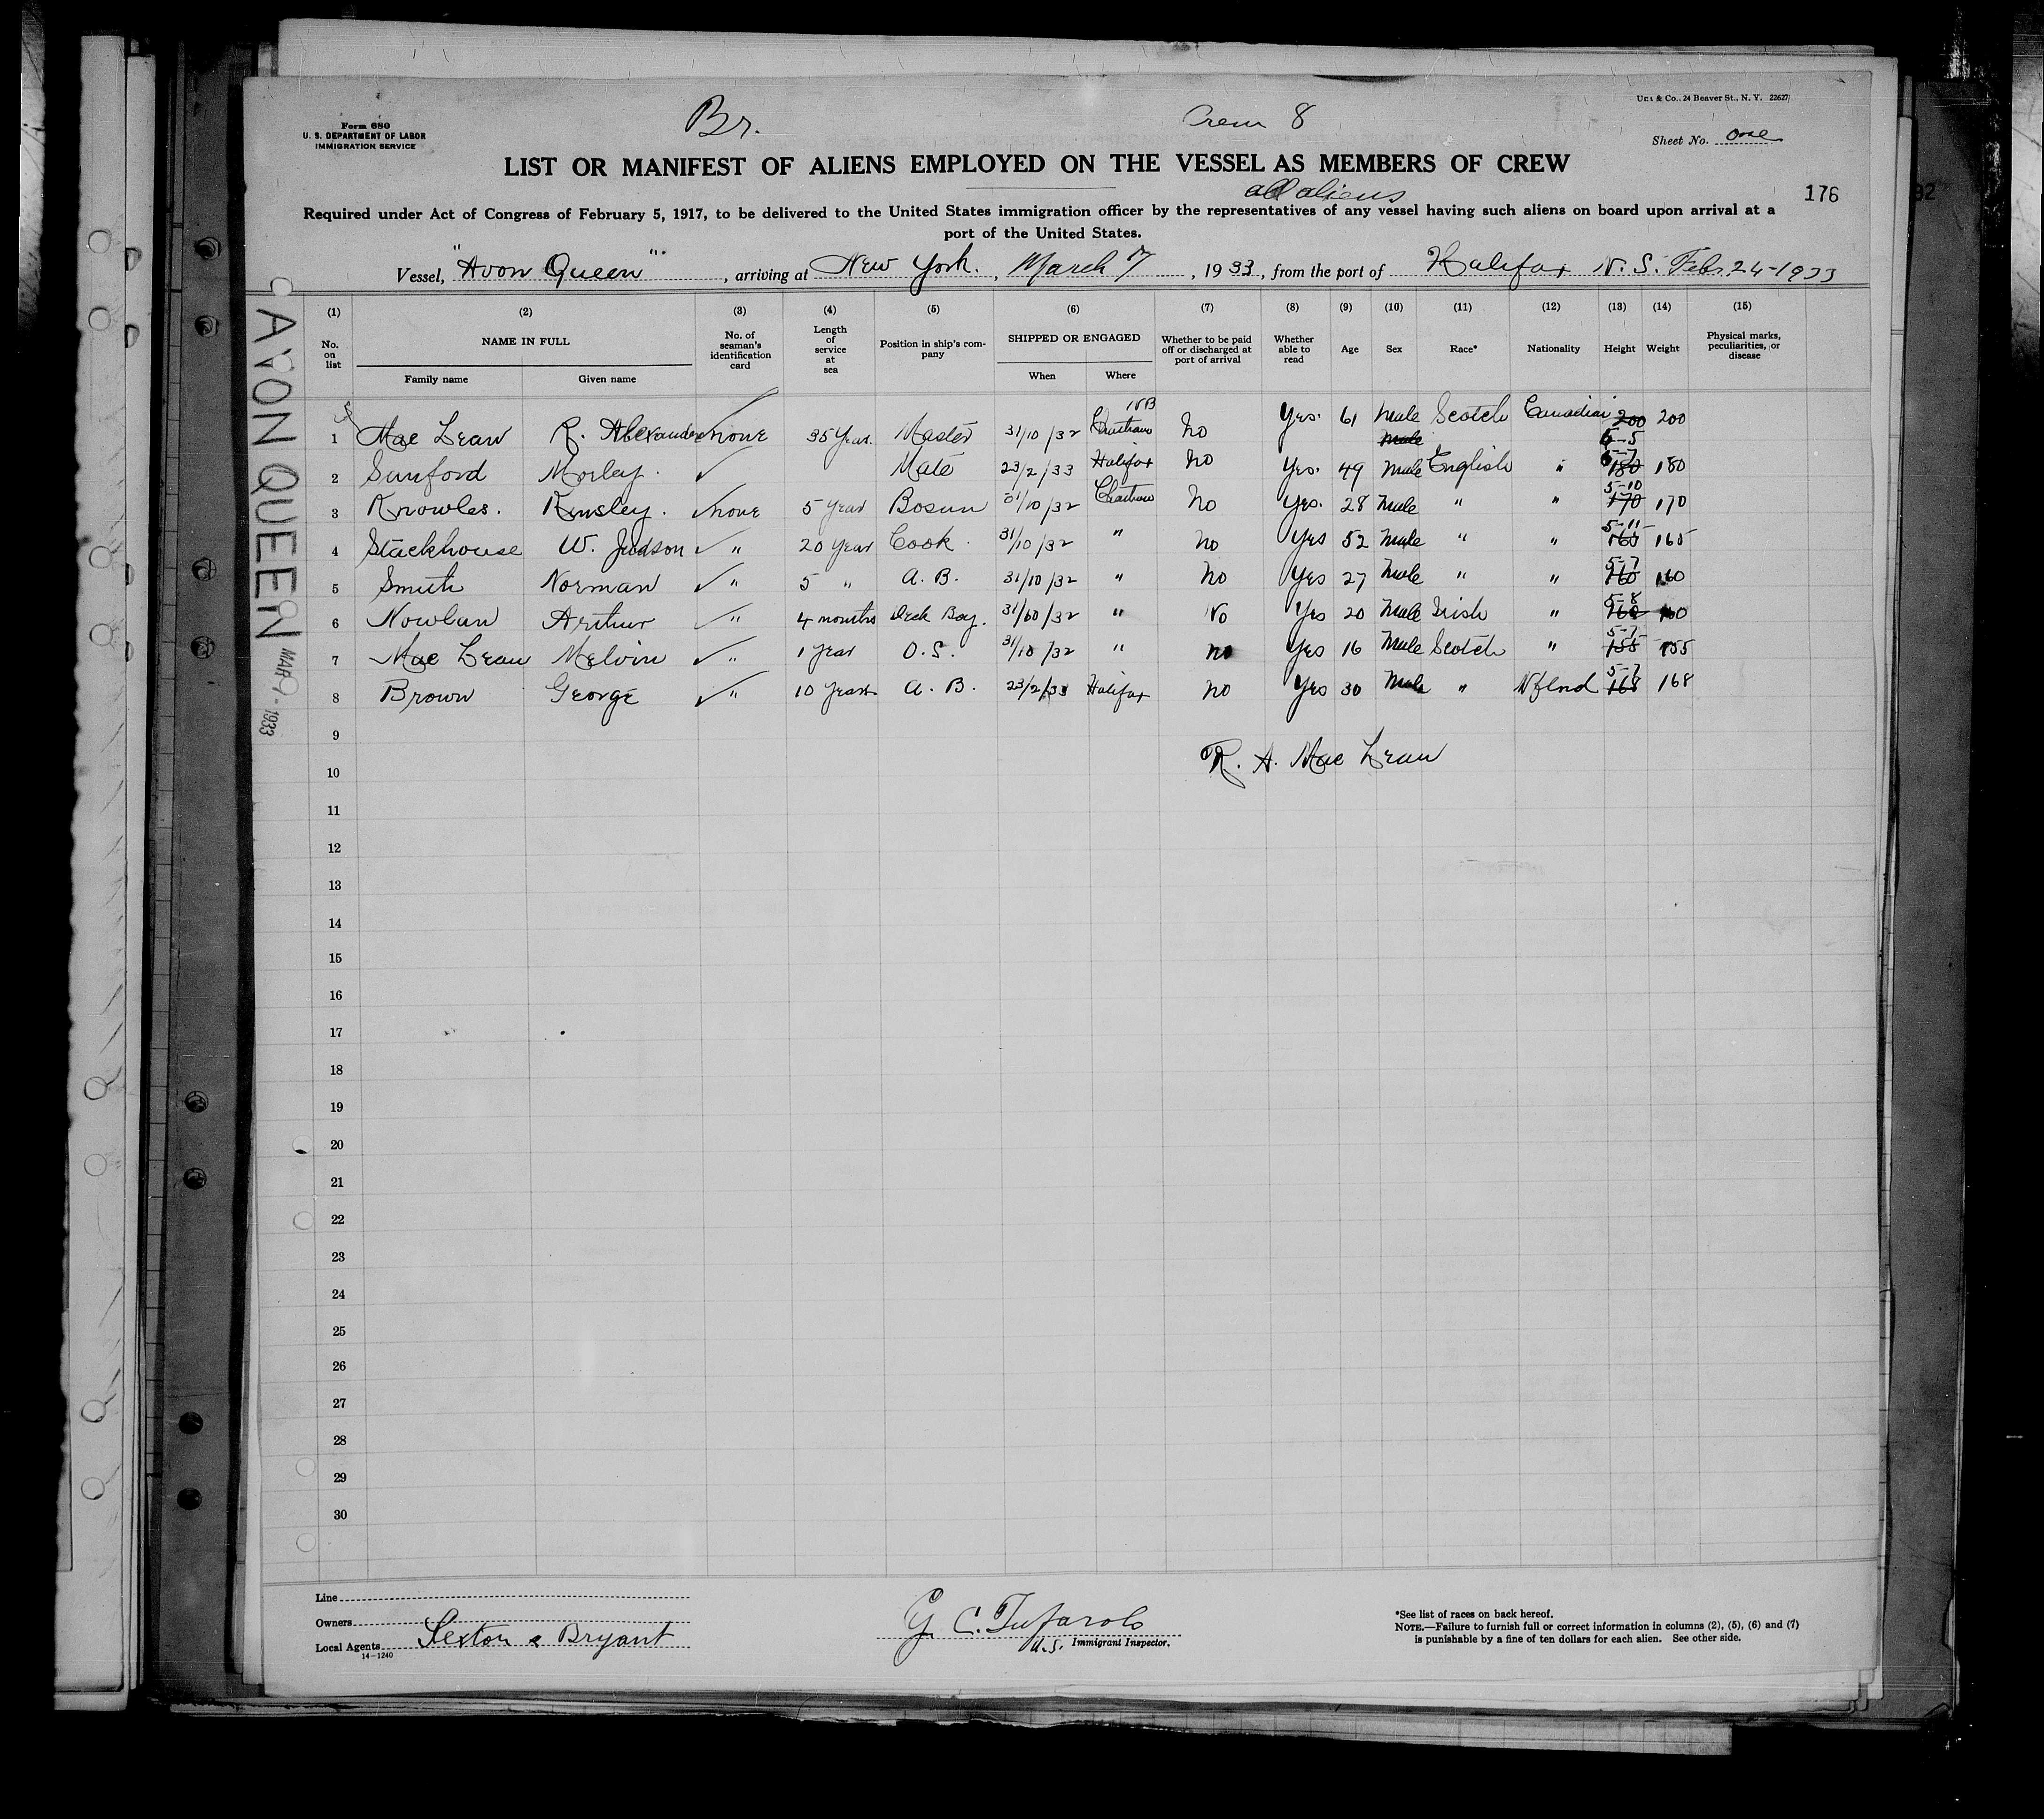 Br.
Crew 8
Co., 24 Beaver St., N. Y. 22627
Form 680
U. S. DEPARTMENT OF LABOR
IMMIGRATION SERVICE
Sheet No. one
LIST OR MANIFEST OF ALIENS EMPLOYED ON THE VESSEL AS MEMBERS OF CREW
all aliens
176
Required under Act of Congress of February 5, 1917, to be delivered to the United States immigration officer by the representatives of any vessel having such aliens on board upon arrival at a
port of the United States.
Vessel, "Avon Queen", arriving at New York., March 7, 1933, from the port of Halifax N. S. Feb. 24-1933
AVON QUEEN MAR 7 - 1933
(1) (2) (3) (4) (5) (6) (7) (8) (9) (10) (11) (12) (13) (14) (15)
No. on list NAME IN FULL Family name Given name No. of seaman's identification card Length of service at sea Position in ship's company SHIPPED OR ENGAGED When Where Whether to be paid off or discharged at port of arrival Whether able to read Age Sex Race* Nationality Height Weight Physical marks, peculiarities, or disease
1 Mac Lean R. Alexander none 35 Year. Master 31/10/32 NB No Yes. 61 Male Scotch Canadian 200 5-5 200
Male
2 Sanford Morley. Mate 23/2/33 Halifax No Yes. 49 Male English " 180 5-7 180
3 Knowles. Kinsley. none 5 Year Bosun 31/10/32 No Yes. 28 Male " " 5-10 170 170
4 Stackhouse W. Judson " 20 Year Cook. 31/10/32 " No Yes 52 Male " " 5-11 165 165
5 Smith Norman " 5 " A. B. 31/10/32 " No Yes 27 Male " " 5-7 160 160
6 Nowlan Arthur " 4 months Deck Boy. 31/10/32 " No Yes 20 Male Irish " 5-8 160 160
7 Mac Lean Melvin " 1 Year O. S. 31/10/32 " No Yes 16 Male Scotch " 5-7 155 155
8 Brown George " 10 Years A. B. 23/2/33 Halifax No Yes 30 Male " Nflnd 5-7 168 168
9
R. A. Mac Lean
10
11
12
13
14
15
16
17
18
19
20
21
22
23
24
25
26
27
28
29
30
Line
Owners
Local Agents Sexton & Bryant
14-1240
U.S. Immigrant Inspector.
*See list of races on back hereof.
NOTE.—Failure to furnish full or correct information in columns (2), (5), (6) and (7)
is punishable by a fine of ten dollars for each alien. See other side.